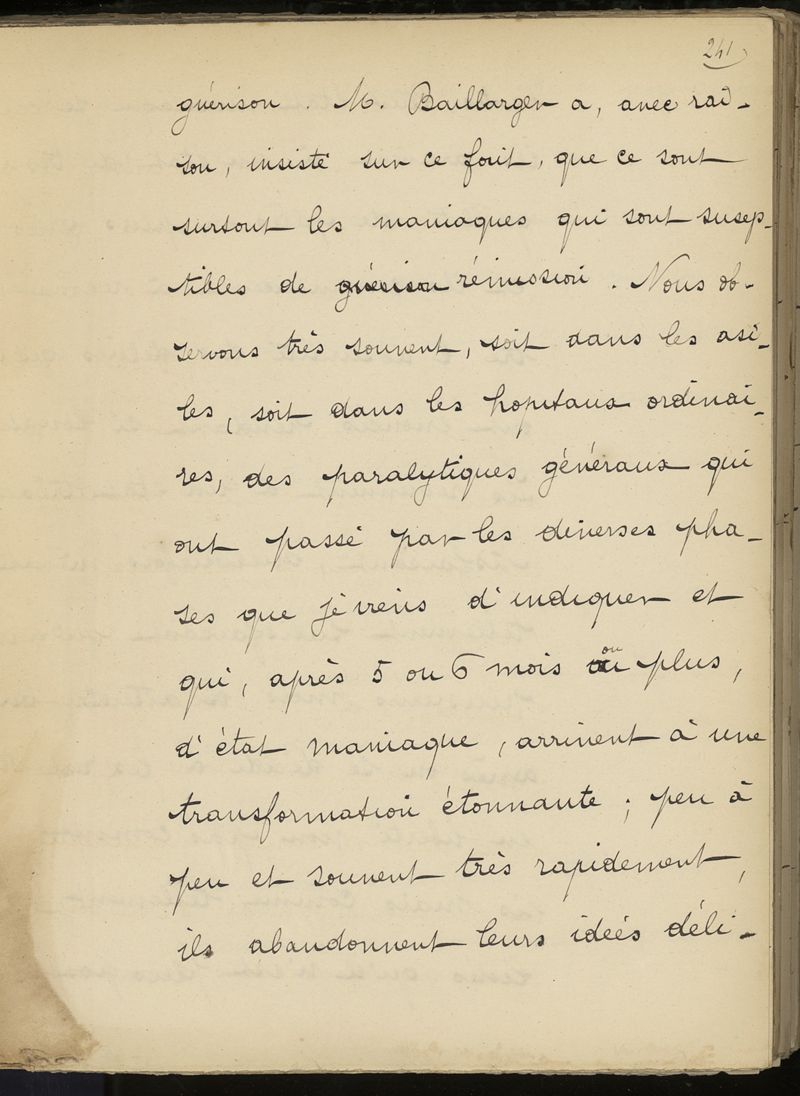 241
guérison. M. Baillarger a, avec rai-
son, insisté sur ce fait, que ce sont
surtout les maniaques qui sont suscep-
tibles de guérison rémission. Nous ob-
servons très souvent, soit dans les asi-
les, soit dans les hopitaux ordinai-
res, des paralytiques généraux qui
ont passé par les diverses pha-
ses que je viens d'indiquer et
qui, après 5 ou 6 mois ou plus,
d'état maniaque, arrivent à une
transformation étonnante ; peu à
peu et souvent très rapidement,
ils abandonnent leurs idées déli-